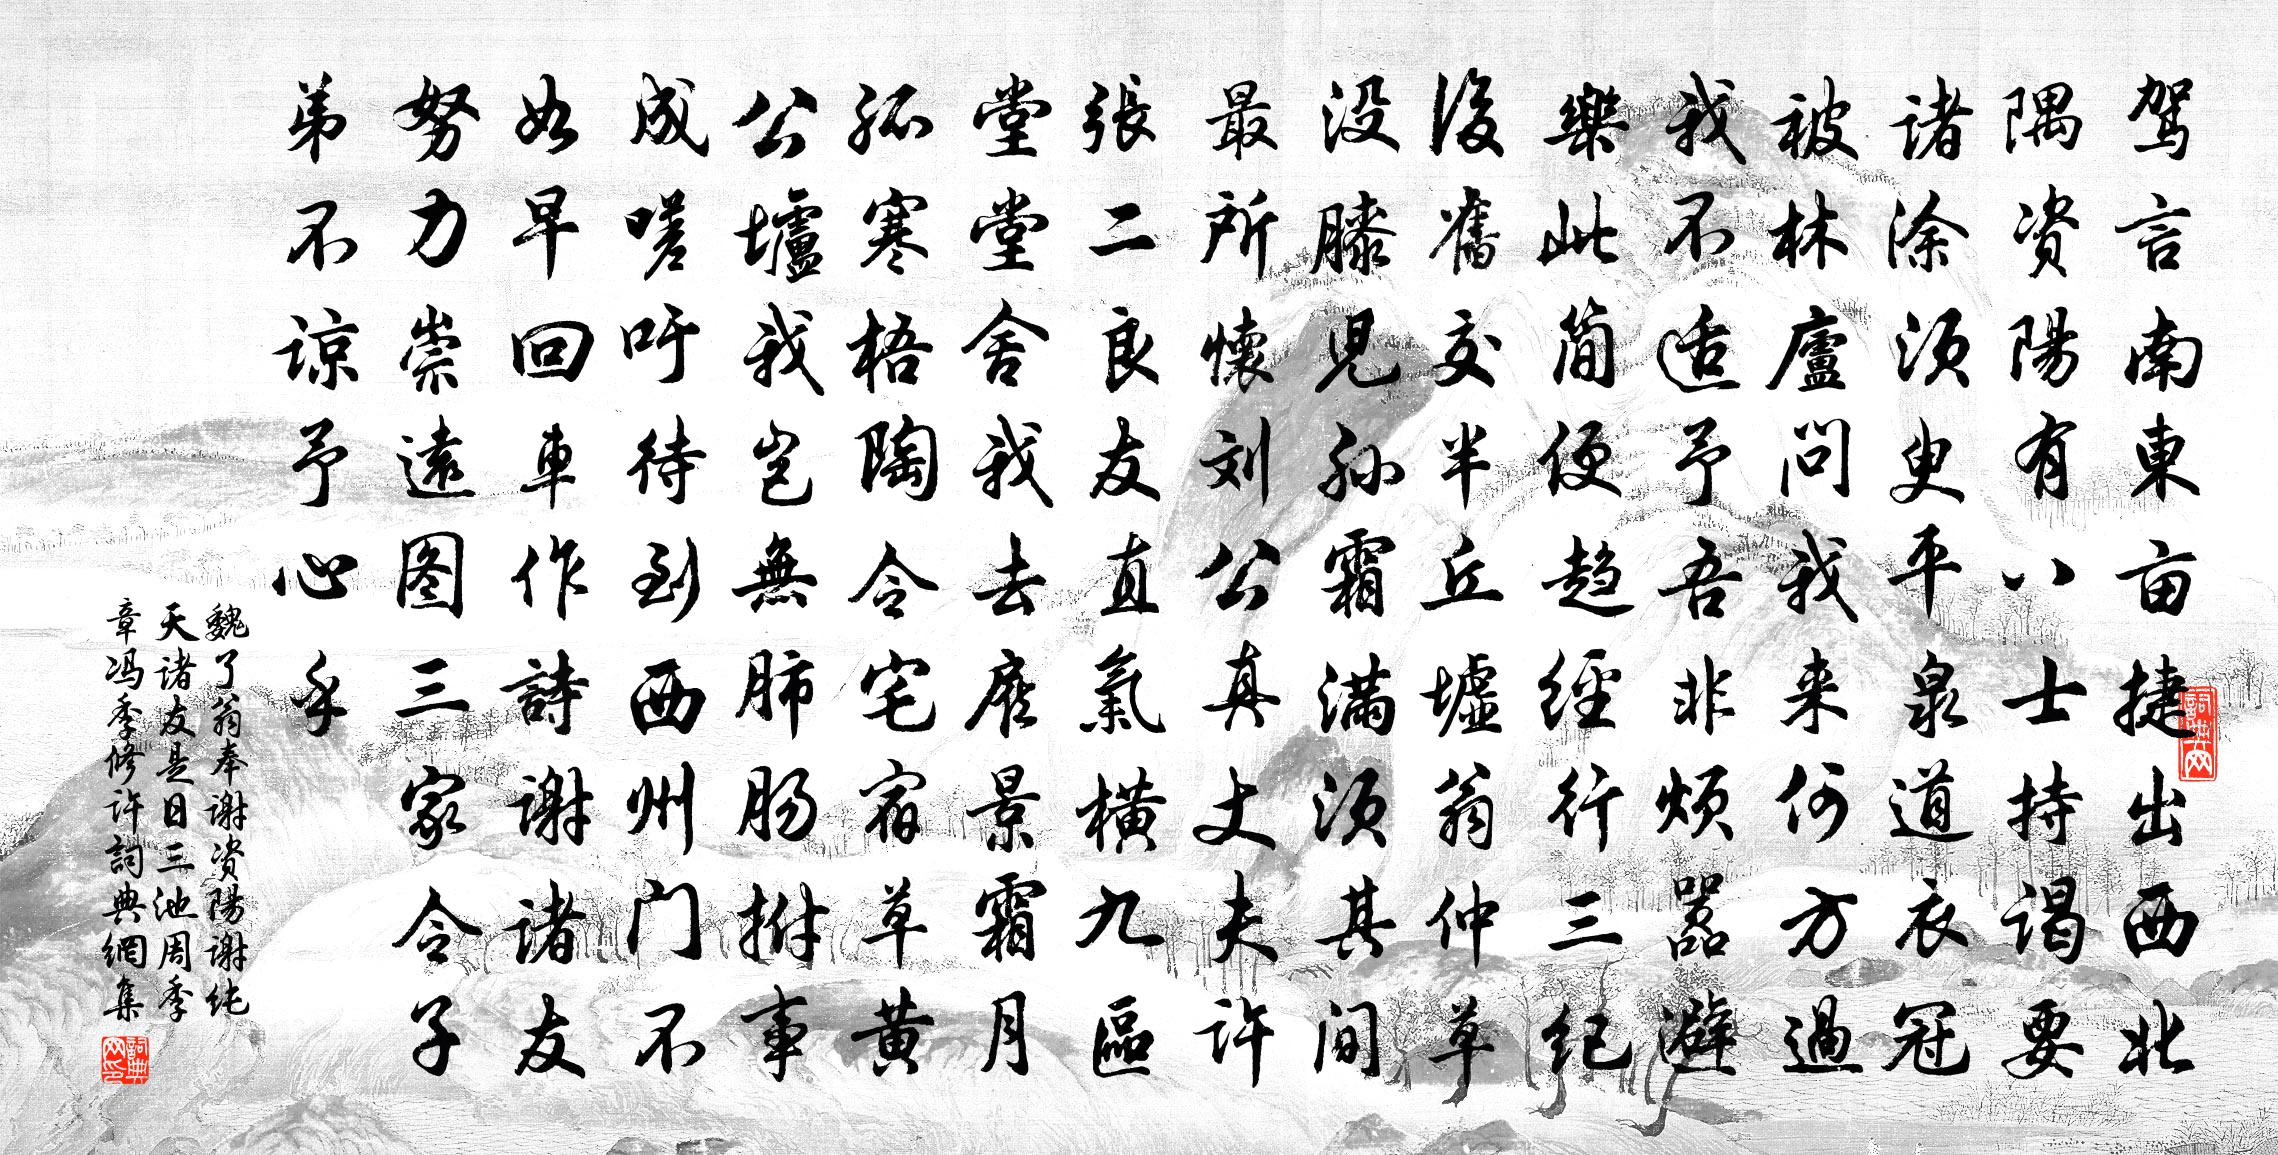 驾言南東亩捷出西北
隅资陽有八士持谒要
诸涂须臾平泉道衣冠
被林廬问我来何方過
我不适予吾非烦嚣避
樂此简便趋经行三纪
後舊交半丘墟翁仲草
没膝儿孙霜满须其间
最所懷刘公真丈夫许
張二良友直氣横九區
堂堂舍我去雁景霜月
孤寒梧陶令宅宿草黄
公壚我岂無肺肠拊事
成嗟吁待到西州门不
如早回車作詩谢诸友
努力崇遠图三家令子
弟不谅予心乎
魏了翁奉谢资陽谢纯
天诸友是日三池周季
章冯季修许詞典網集
詞典网
詞典网印